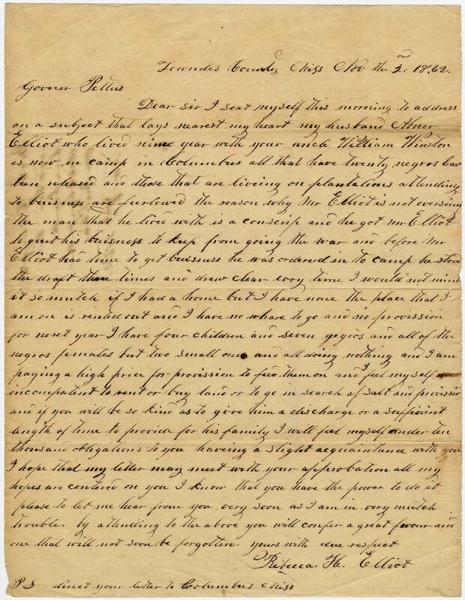 Lowndes County Miss Nov the 2nd. 1862.
Govner Pettus
Dear Sir I seat myself this morning to address
on a subject that lays nearest my heart my husband Abner
Elliot who lived nine year with your uncle William Winston
is now in camp in Columbus all that have twenty negros have
ben released and those that are liveing on plantations attending
to buisness are furlowed the reason why Mr Elliot is not overseeing
the man that he lived with is a conscrip and he got Mr Elliot
to quit his buisness to keep from going the war and before Mr
Elliot had time to get buisness he was ordered in to camp he stood
the draft three times and drew clear evry time I would not mind
it so mutch if I had a home but I have none the place that I
am on is rented out and I have no where to go and no provission
for next year I have four children and seven negros and all of the
negros females but two small ones and all doing nothing and I am
paying a high price for provission to feed them on and feel myself
incompatent to rent or buy land or to go in search of salt and provission
and if you will be so kind as to give him a discharge or a suffisint
length of time to provide for his family I will feel myself under ten
thousand obligations to you haveing a slight acquaintance with you
I hope that my letter may meet with your approbation all my
hopes are centered on you I know that you have the power to do it
please to let me hear from you very soon as I am in very mutch
trouble. by attending to the above you will confer a great favour and
one that will not soon be forgotten. yours with due respect
Rebecca H. Elliot
PS direct your letter to Columbus Miss